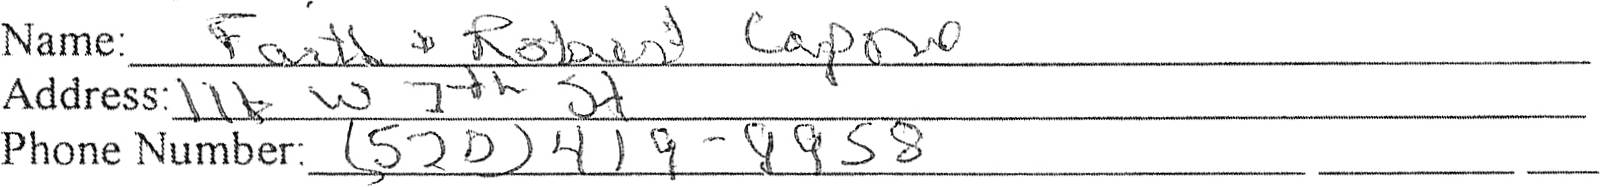 Name: Faith & Robert Capone
Address: 116 W 7th St
Phone Number: (520) 419-9958